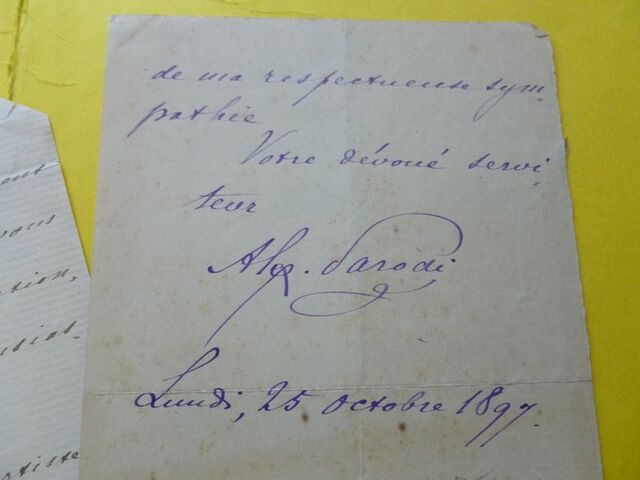 de ma respectueuse sym-
pathie
Votre dévoué servi-
teur
Alex. Parodi
Lundi, 25 octobre 1897.
ont
vous
ation,
usias-
atiste